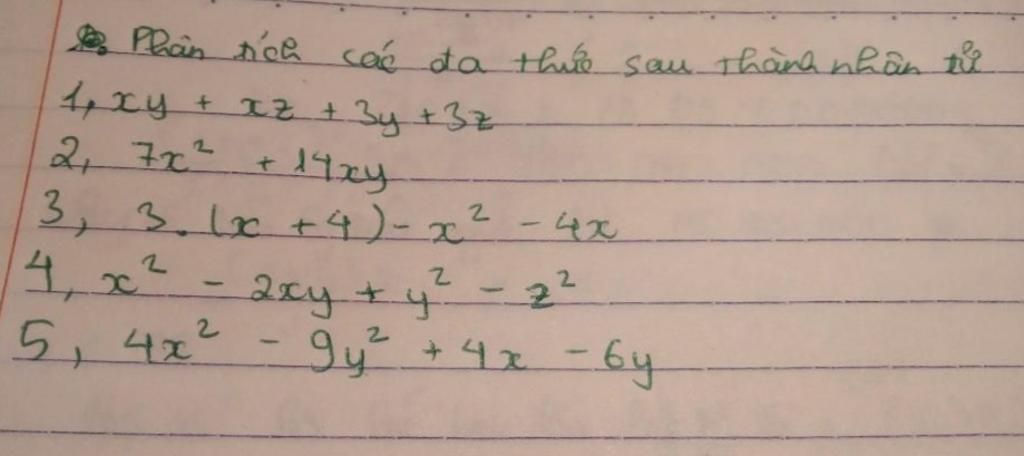 Phân tích các đa thức sau thành nhân tử
1, xy + xz + 3y + 3z
2, 7x² + 14xy
3, 3.(x + 4) - x² - 4x
4, x² - 2xy + y² - z²
5, 4x² - 9y² + 4x - 6y